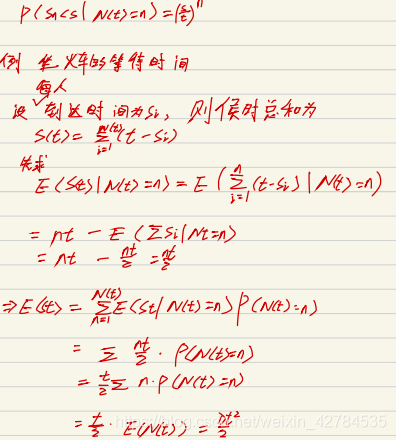 P(Sn<s | N(t)=n) = (s/t)^n
例 坐火车的等待时间
每人
设 到达时间为Si, 则候时总和为
S(t) = Σ_{i=1}^{N(t)} (t-Si)
先求
E(S(t)|N(t)=n) = E(Σ_{i=1}^{n} (t-Si) | N(t)=n)
= nt - E(ΣSi|Nt=n)
= nt - nt/2 = nt/2
⇒ E(St) = Σ_{n=1}^{N(t)} E(St|N(t)=n) P(N(t)=n)
= Σ nt/2 · P(N(t)=n)
= t/2 Σ n·P(N(t)=n)
= t/2 · E(N(t)) = λt²/2
https://blog.csdn.net/weixin_42784535